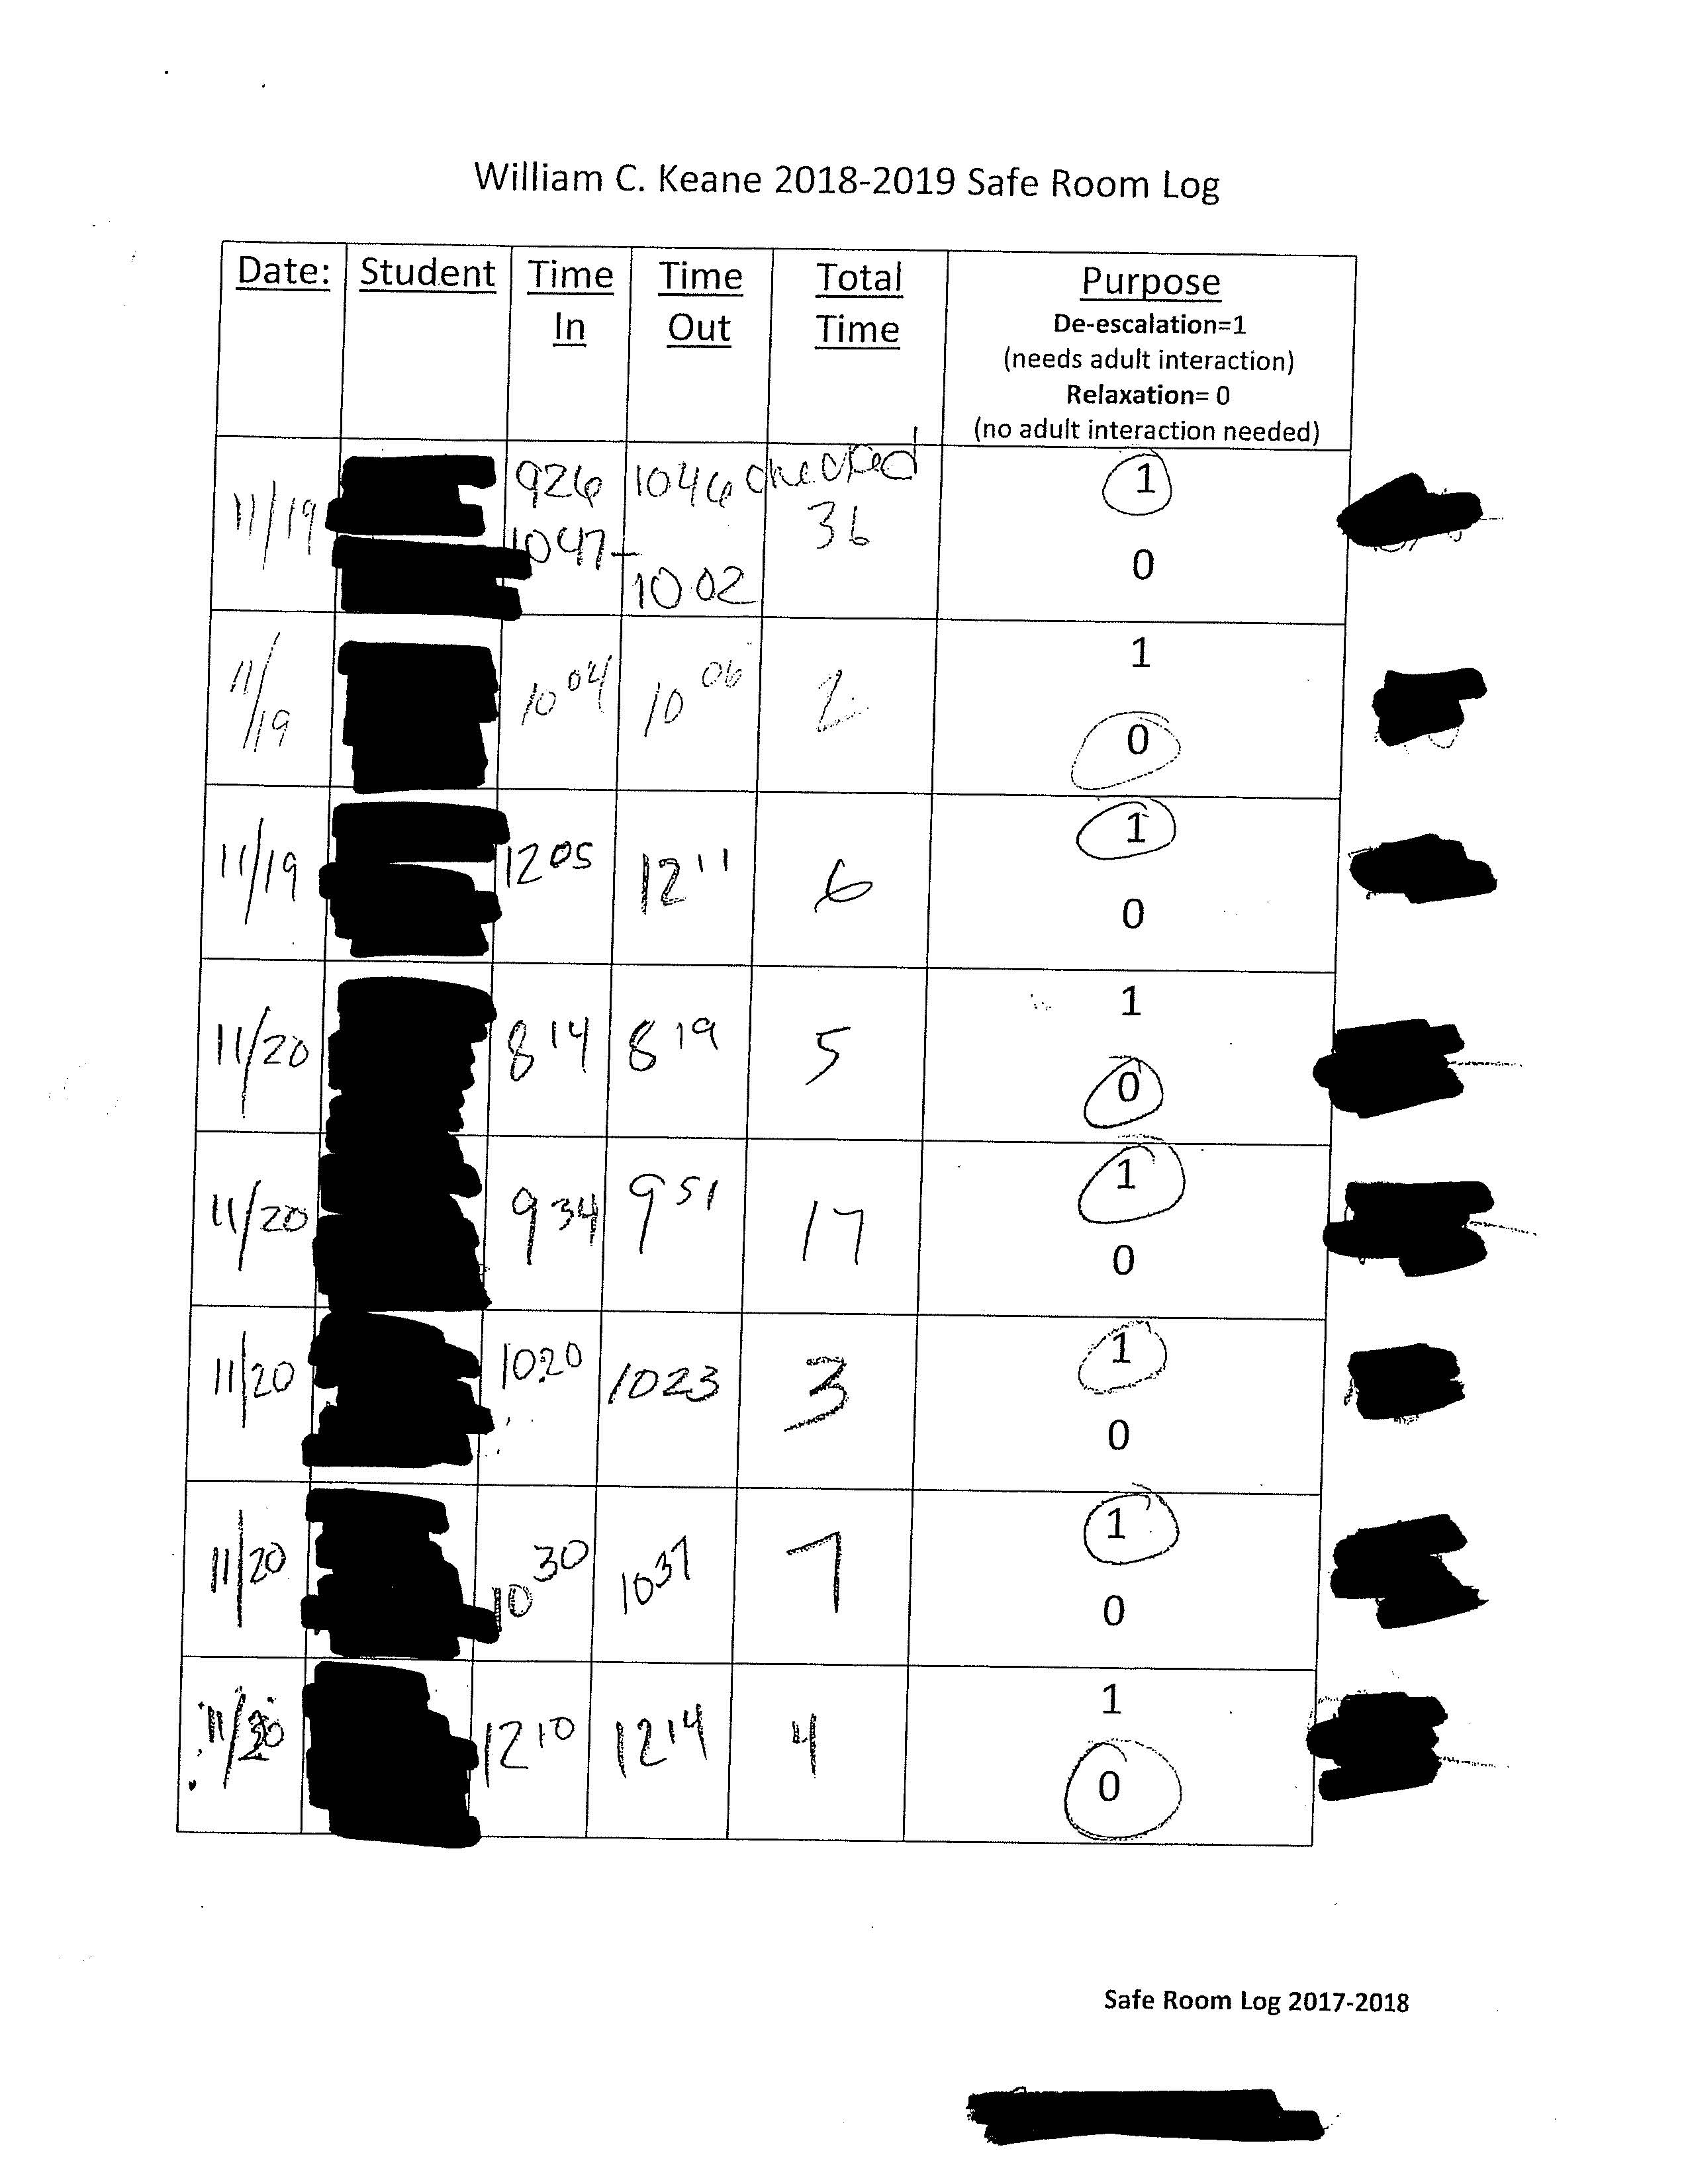 William C. Keane 2018-2019 Safe Room Log
Date: Student Time In Time Out Total Time Purpose
De-escalation=1
(needs adult interaction)
Relaxation= 0
(no adult interaction needed)
11/19 926 1046 checked 1
1047- 36
1002 0
11/19 1004 1006 2 1
0
11/19 1205 1211 6 1
0
11/20 814 819 5 1
0
11/20 934 951 17 1
0
11/20 1020 1023 3 1
0
11/20 1030 1037 7 1
0
11/20 1210 1214 4 1
0
Safe Room Log 2017-2018